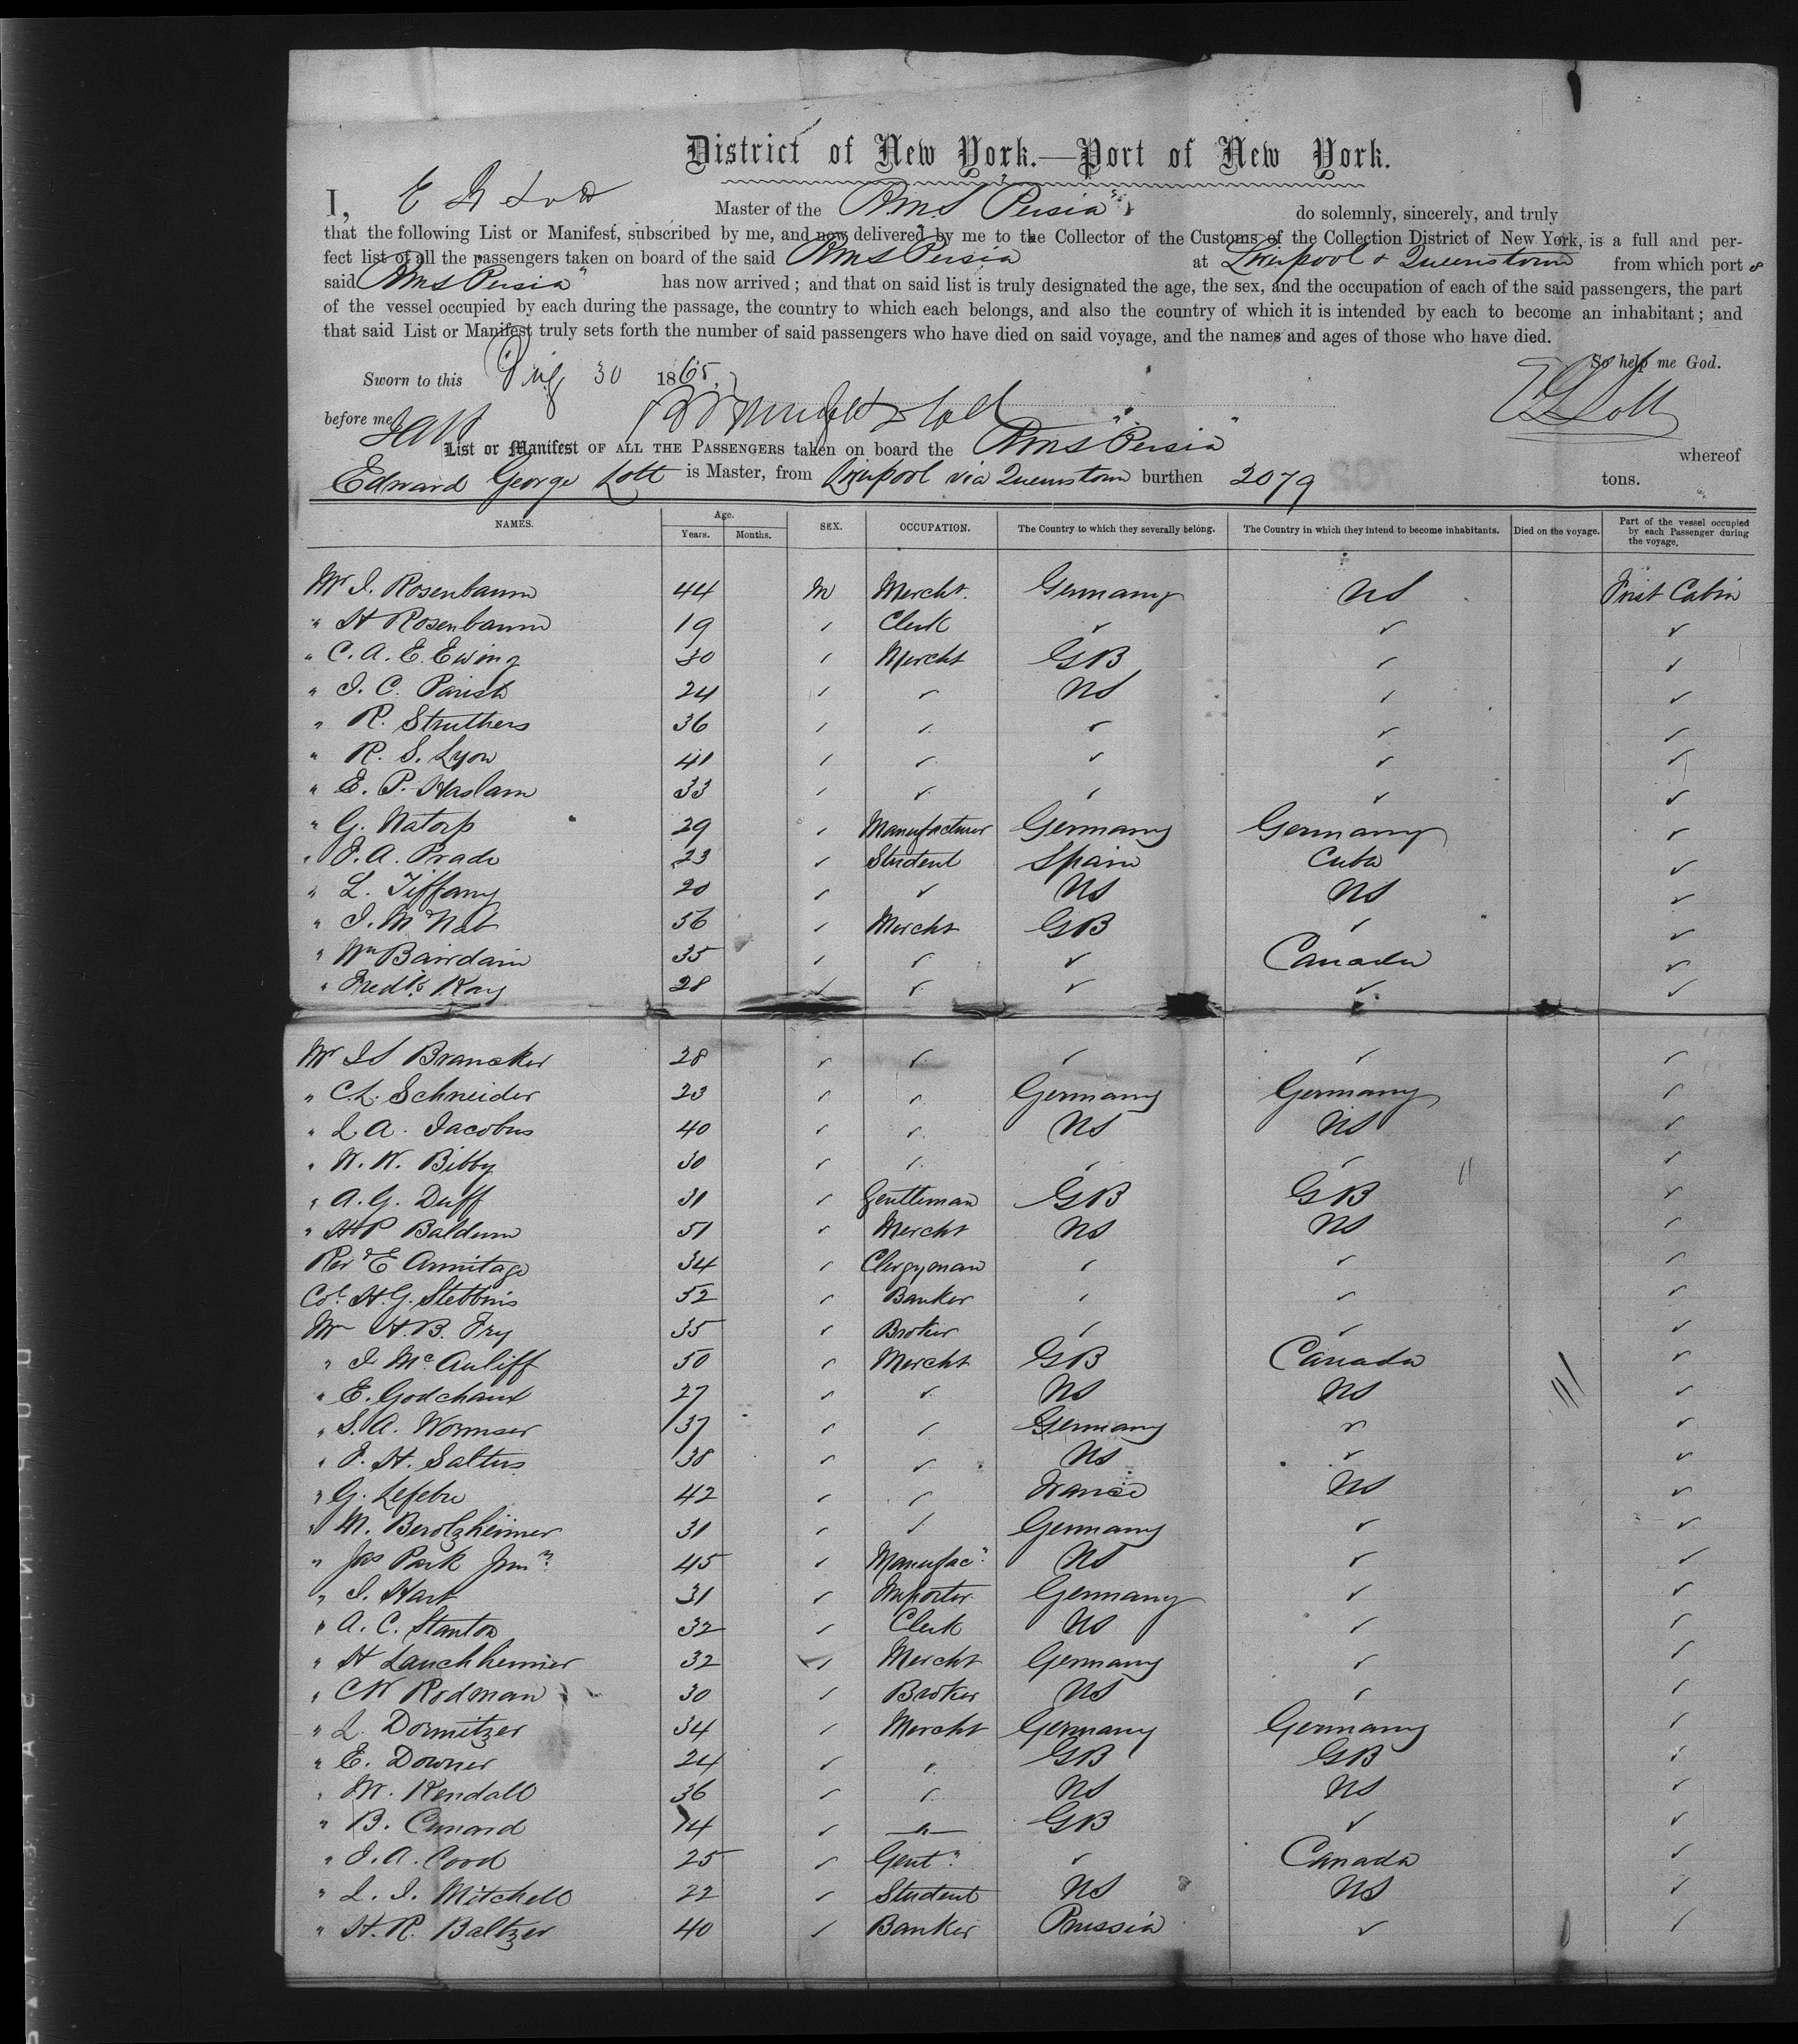 District of New York.—Port of New York.
I, E G Lott Master of the "RMS Persia" do solemnly, sincerely, and truly
that the following List or Manifest, subscribed by me, and now delivered by me to the Collector of the Customs of the Collection District of New York, is a full and per-
fect list of all the passengers taken on board of the said RMS Persia at Liverpool & Queenstown from which port s
said RMS Persia" has now arrived; and that on said list is truly designated the age, the sex, and the occupation of each of the said passengers, the part
of the vessel occupied by each during the passage, the country to which each belongs, and also the country of which it is intended by each to become an inhabitant; and
that said List or Manifest truly sets forth the number of said passengers who have died on said voyage, and the names and ages of those who have died.
So help me God.
Sworn to this Aug 30 1865,
before me EG Lott
List or Manifest OF ALL THE PASSENGERS taken on board the RMS "Persia" whereof
Edward George Lott is Master, from Liverpool via Queenstown burthen 2079 tons.
NAMES. Age. Years. Months. SEX. OCCUPATION. The Country to which they severally belong. The Country in which they intend to become inhabitants. Died on the voyage. Part of the vessel occupied by each Passenger during the voyage.
Mr I. Rosenbaum 44 M Mercht. Germany US First Cabin
" H Rosenbaum 19 ✓ Clerk ✓ ✓ ✓
" C. A. E. Ewing 30 ✓ Mercht GB ✓ ✓
" J. C. Parish 24 ✓ ✓ US ✓ ✓
" R. Struthers 36 ✓ ✓ ✓ ✓ ✓
" R. S. Lyon 41 ✓ ✓ ✓ ✓ ✓
" E. P. Haslam 33 ✓ ✓ ✓ ✓ ✓
" G. Natorp 29 ✓ Manufacturer Germany Germany ✓
" J. A. Prado 23 ✓ Student Spain Cuba ✓
" L. Tiffany 20 ✓ ✓ US US ✓
" J. McNab 56 ✓ Mercht GB ✓ ✓
" Wm Bairdain 35 ✓ ✓ ✓ Canada ✓
" Fredk. Kay 28 ✓ ✓ ✓ ✓ ✓
Mr JS Brancker 28 ✓ ✓ ✓ ✓ ✓
" C.L. Schneider 23 ✓ ✓ Germany Germany ✓
" L A. Jacobus 40 ✓ ✓ US US ✓
" W. W. Bibby 30 ✓ ✓ ✓ ✓ ✓
" A. G. Duff 31 ✓ Gentleman GB GB ✓
" H P Baldwin 51 ✓ Mercht US US ✓
Revd E Armitage 34 ✓ Clergyman ✓ ✓ ✓
Col. H. G. Stebbins 52 ✓ Banker ✓ ✓ ✓
Mr H. B. Fry 35 ✓ Broker ✓ ✓ ✓
" J. McAuliff 50 ✓ Mercht GB Canada ✓
" E. Godchaux 27 ✓ ✓ US US ✓
" S. A. Wormser 37 ✓ ✓ Germany ✓ ✓
" J. H. Saltus 38 ✓ ✓ US ✓ ✓
" G. Lefebre 42 ✓ ✓ France US ✓
" M. Berolzheimer 31 ✓ ✓ Germany ✓ ✓
" Jas Park Junr. 45 ✓ Manufacr. US ✓ ✓
" I. Hart 31 ✓ Importer Germany ✓ ✓
" A. C. Stanton 32 ✓ Clerk US ✓ ✓
" H Lauchheimer 32 ✓ Mercht Germany ✓ ✓
" CW Rodman 30 ✓ Broker US ✓ ✓
" L. Dormitzer 34 ✓ Mercht Germany Germany ✓
" E. Downer 24 ✓ " GB GB ✓
" W. Kendall 36 ✓ ✓ US US ✓
" B. Cunard 14 ✓ —"— GB ✓ ✓
" J. A. Cood 25 ✓ Gentn. ✓ Canada ✓
" L. I. Mitchell 22 ✓ Student US US ✓
" H. R. Baltzer 40 ✓ Banker Prussia ✓ ✓